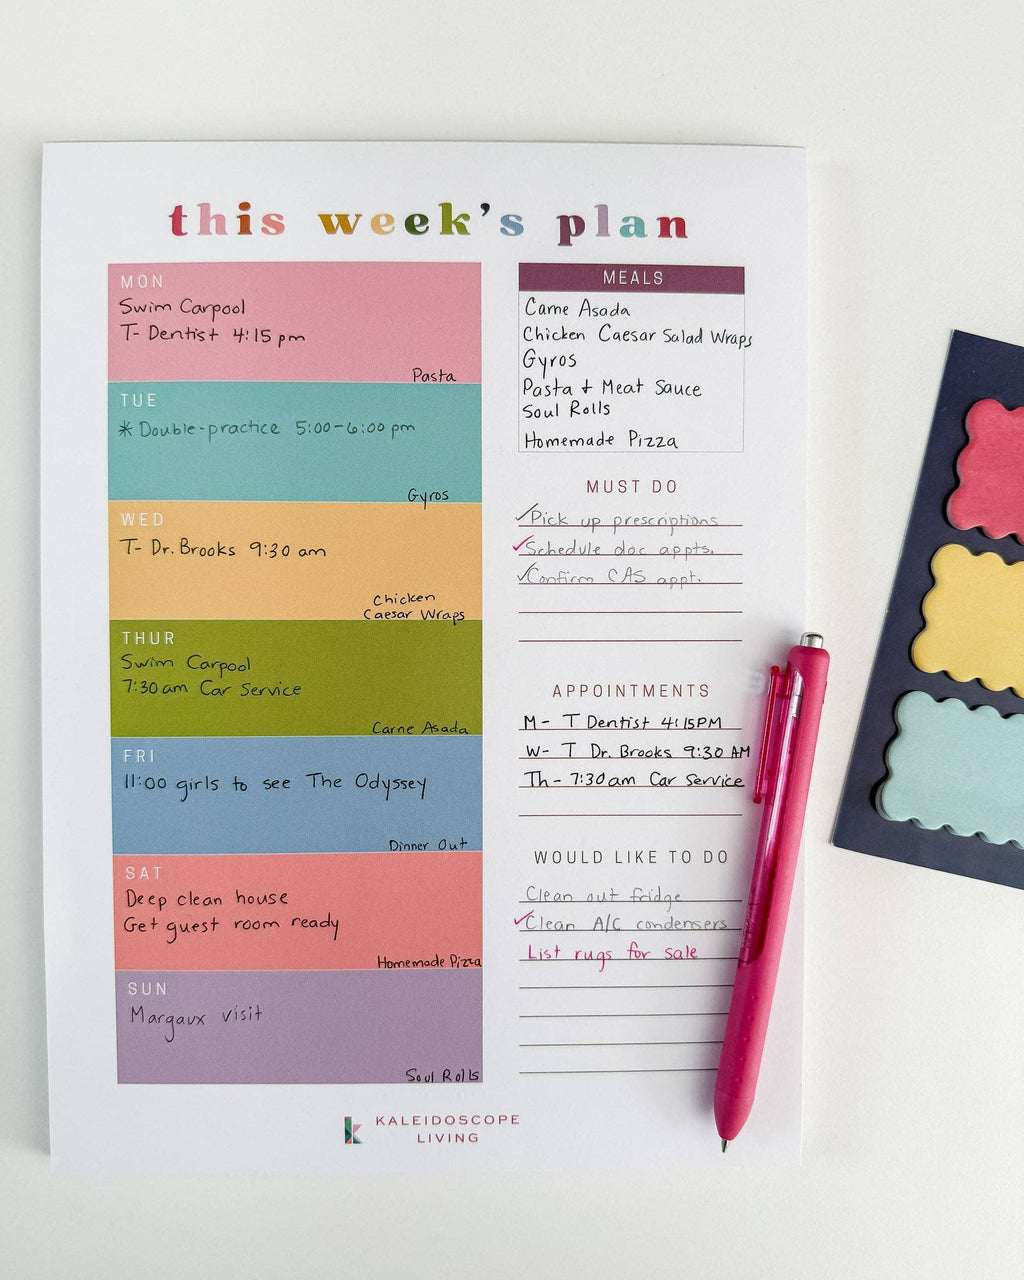 this week's plan
MON
Swim Carpool
T- Dentist 4:15 pm
Pasta
TUE
* Double-practice 5:00-6:00 pm
Gyros
WED
T- Dr. Brooks 9:30 am
Chicken
Caesar Wraps
THUR
Swim Carpool
7:30 am Car Service
Carne Asada
FRI
11:00 girls to see The Odyssey
Dinner Out
SAT
Deep clean house
Get guest room ready
Homemade Pizza
SUN
Margaux visit
Soul Rolls
MEALS
Carne Asada
Chicken Caesar Salad Wraps
Gyros
Pasta + Meat Sauce
Soul Rolls
Homemade Pizza
MUST DO
✓Pick up prescriptions
✓Schedule doc appts.
✓Confirm CAS appt.
APPOINTMENTS
M- T Dentist 4:15PM
W- T Dr. Brooks 9:30 AM
Th- 7:30am Car Service
WOULD LIKE TO DO
Clean out fridge
✓Clean A/C condensers
List rugs for sale
KALEIDOSCOPE
LIVING